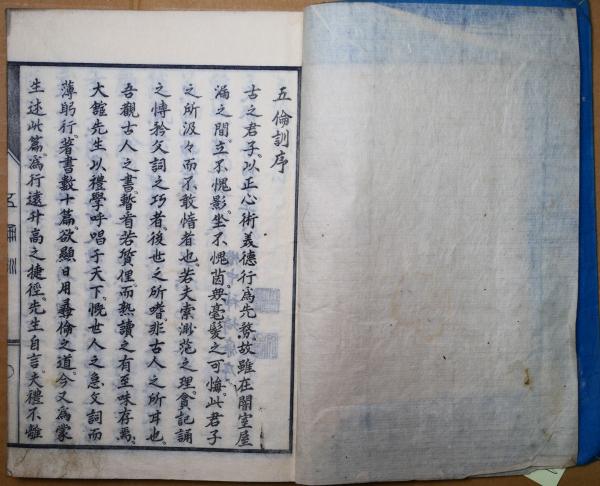 五倫訓序
古之君子。以正心術義德行為先務。故雖在闇室屋
漏之間。立不愧影。坐不愧茵。毋毫髮之可悔。此君子
之所汲々而不敢惰者也。若夫索渺茫之理。貪記誦
之博。矜文詞之巧者。後世之所嗜。非古人之所取也。
吾觀古人之書。暫看若質俚。而熟讀之有至味存焉。
大館先生以禮學呼唱于天下。慨世人之急文詞而
薄躬行。著書數十篇。欲顯日用彝倫之道。今又為蒙
生述此篇。為行遠升高之捷徑。先生自言。夫禮不離
五倫訓